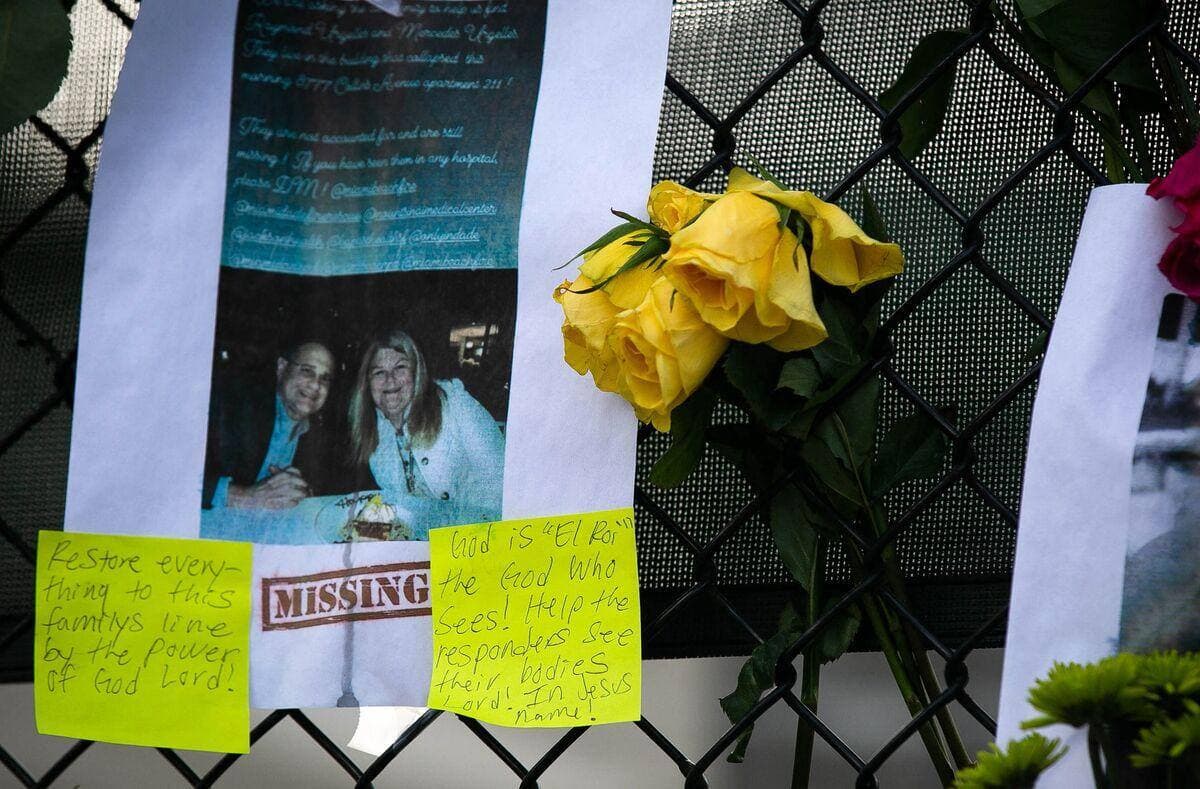 Raymond Urgelles and Mercedes Urgelles.
They live in the building that collapsed this
morning 8777 Collins Avenue apartment 211 !
They are not accounted for and are still
missing ! If you have seen them in any hospital,
please DM ! @miamibeachfire
@onlyindade
Restore every-
thing to this
familys line
by the power
of God Lord!
MISSING
God is "El Roi"
the God Who
Sees! Help the
responders see
their bodies
Lord! In Jesus
name!